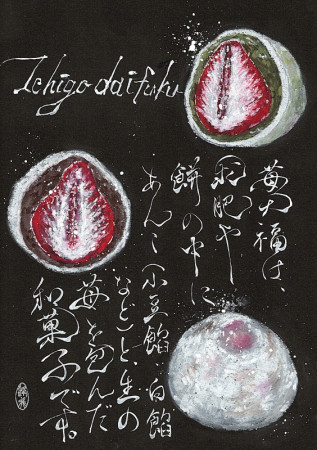 Ichigo daifuku
苺大福は、
羽肥や
餅の中に
あんこ(小豆餡 白餡
など)と、生の
苺を包んだ
和菓子です。